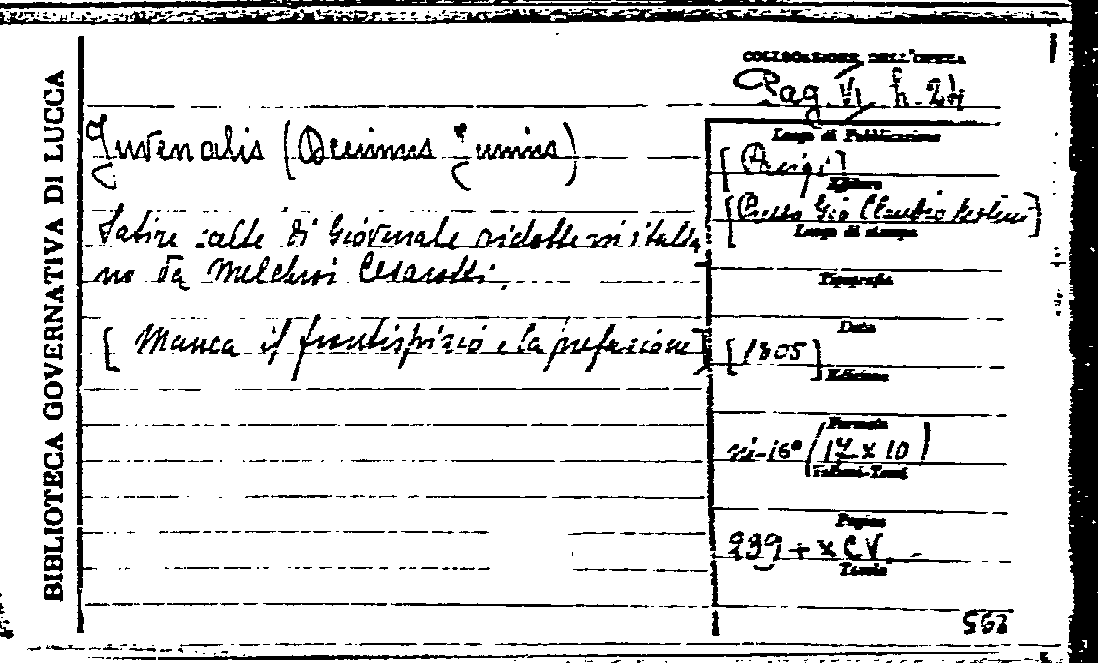 BIBLIOTECA GOVERNATIVA DI LUCCA
COLLOCAZIONE DELL'OPERA
Pag. VI h. 24
Juvenalis (Decimus Junius)
Satire scelte di Giovenale ridotte in italia
no da Melchior Cesarotti.
[Manca il frontispizio e la prefazione]
Luogo di Pubblicazione
[Parigi]
Editore
[Presso Gio Claudio Molini]
Luogo di stampa
Tipografia
Data
[1805]
Edizione
Formato
in-16° (17 x 10)
Volumi-Tomi
Pagine
239 + XCV.
Tavole
562